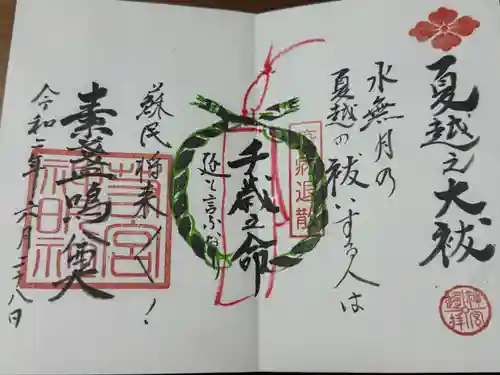 夏越之大祓
水無月の
夏越の祓いする人は
疫病退散
千歳の命
延と言ふなり
蘇民将来〳〵！
素盞嗚尊
令和二年六月二十八日